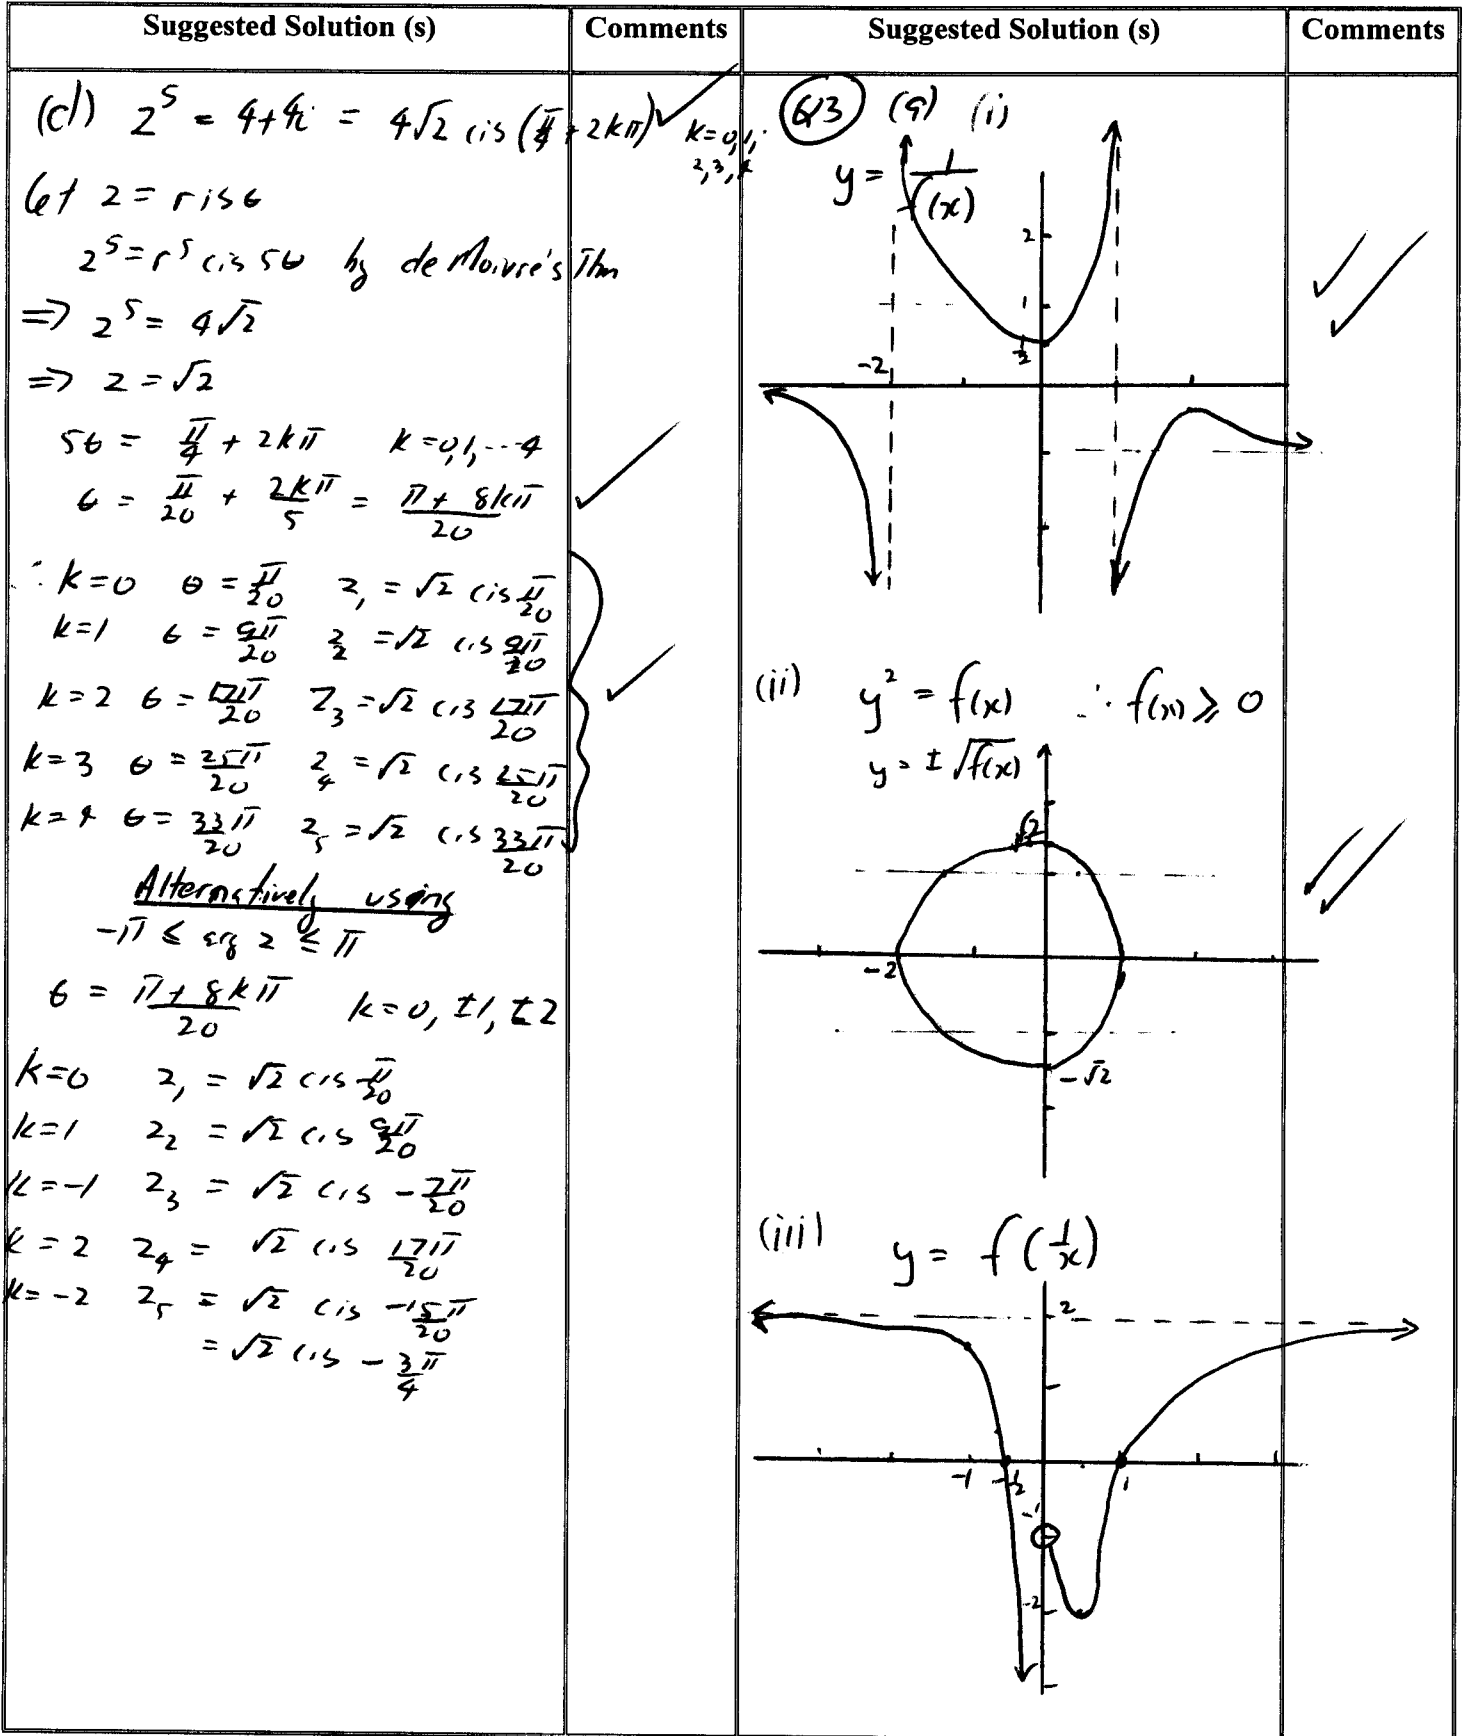 Suggested Solution (s) Comments Suggested Solution (s) Comments
(d) z^5 = 4+4i = 4√2 cis (π/4 + 2kπ) k=0,1,
2,3,4
Let z = r cis θ
z^5 = r^5 cis 5θ by de Moivre's Thm
=> z^5 = 4√2
=> z = √2
5θ = π/4 + 2kπ k=0,1,...4
θ = π/20 + 2kπ/5 = (π + 8kπ)/20
∴ k=0 θ = π/20 z_1 = √2 cis π/20
k=1 θ = 9π/20 z_2 = √2 cis 9π/20
k=2 θ = 17π/20 z_3 = √2 cis 17π/20
k=3 θ = 25π/20 z_4 = √2 cis 25π/20
k=4 θ = 33π/20 z_5 = √2 cis 33π/20
Alternatively using
-π ≤ arg z ≤ π
θ = (π + 8kπ)/20 k=0, ±1, ±2
k=0 z_1 = √2 cis π/20
k=1 z_2 = √2 cis 9π/20
k=-1 z_3 = √2 cis -7π/20
k=2 z_4 = √2 cis 17π/20
k=-2 z_5 = √2 cis -15π/20
= √2 cis -3π/4
Q3 (a) (i)
y = 1/f(x)
2
1
1/2
-2
(ii) y^2 = f(x) ∴ f(x) ≥ 0
y = ± √f(x)
√2
-2
-√2
(iii) y = f(1/x)
2
-1 -1/2 1
-1
-2